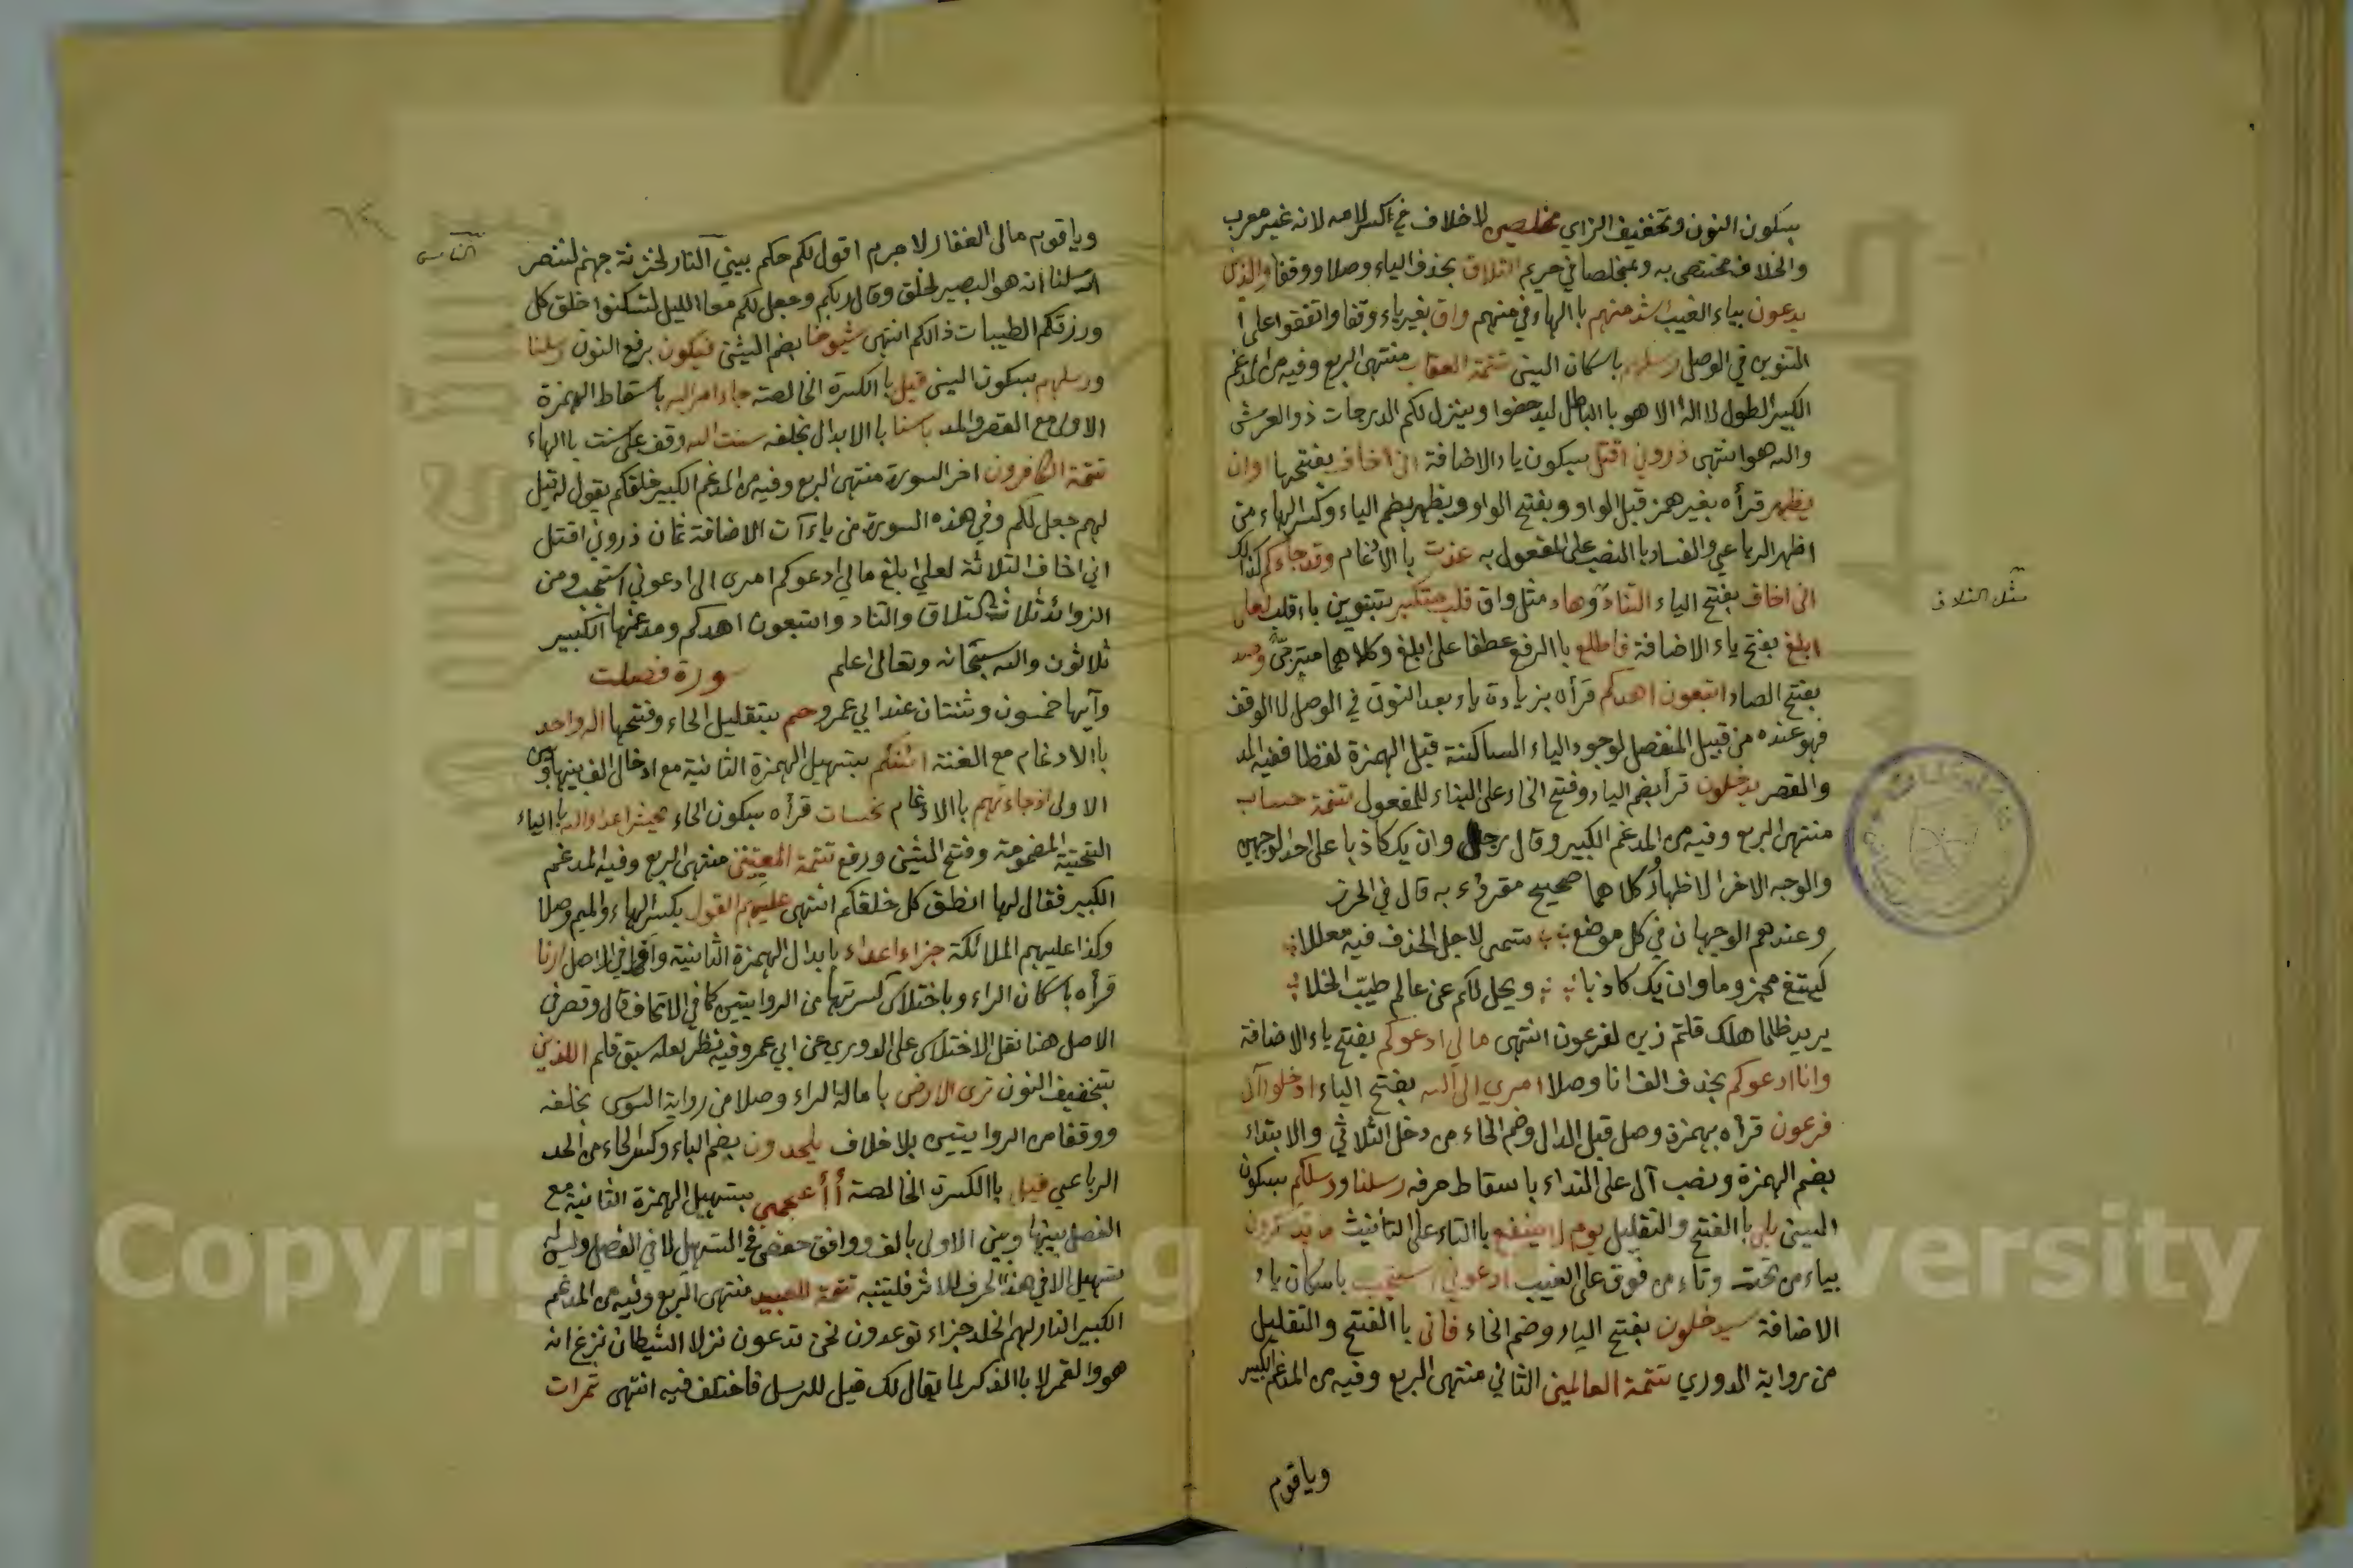 بسكون النون وتخفيف الزاي مخلصين لاخلاف في كسر لامه لانه غير معرب
والخلاف مختص به ومخلصا في مريم التلاق بحذف الياء وصلا ووقفا والذين
يدعون بياء الغيب اشد منهم باالهاء في منهم واق بغير ياء وقفا واتفقوا على
التنوين في الوصل رسلهم باسكان السين تتمة العقاب منتهى الربع وفيه من المدغم
الكبير الطول لا اله الا هو باالباطل ليدحضوا وينزل لكم الدرجات ذو العرش
والله هو انتهى ذروني اقتل بسكون ياء الاضافة اني اخاف بفتحها اوان
يظهر قرأه بغير همز قبل الواو وبفتح الواو ويظهر بضم الياء وكسر الهاء من
اظهر الرباعي والفساد باالنصب على المفعول به عذت باالادغام وقد جاءكم كذلك
اني اخاف بفتح الياء التناد وهاد مثل واق قلب متكبر بتنوين باقلب لعلي
مثل التلاق
ابلغ بفتح ياء الاضافة فاطلع باالرفع عطفا على ابلغ وكلاهما مترجى وصد
بفتح الصاد اتبعون اهدكم قرأه بزيادة ياء بعد النون في الوصل لا الوقف
فهو عنده من قبيل المنفصل لوجود الياء الساكنة قبل الهمزة لفظا ففيه المد
والقصر يدخلون قرأ بضم الياء وفتح الخاء على البناء للمفعول تتمة حساب
منتهى الربع وفيه من المدغم الكبير وقال رجل وان يك كاذبا على احد الوجهين
والوجه الاخر الاظهار وكلاهما صحيح مقروء به قال في الحرز
وعندهم الوجهان في كل موضع تسمى لاجل الحذف فيه معللا
كيبتغ مجزوما وان يك كاذبا ويخل لكم عن عالم طيب الخلا
يريد ظلما هلك قلتم زين لفرعون انتهى مالي ادعوكم بفتح ياء الاضافة
وانا ادعوكم بحذف الف انا وصلا امري الى الله بفتح الياء ادخلوا آل
فرعون قرأه بهمزة وصل قبل الدال وضم الخاء من دخل الثلاثي والابتداء
بضم الهمزة ونصب آل على النداء باسقاط حرفه رسلنا ورسلكم بسكون
السين بلى باالفتح والتقليل يوم لا ينفع باالتاء على التأنيث ما يتذكرون
بياء من تحت وتاء من فوق على الغيب ادعوني استجب باسكان ياء
الاضافة سيدخلون بفتح الياء وضم الخاء فأنى باالفتح والتقليل
من رواية الدوري تتمة العالمين الثاني منتهى الربع وفيه من المدغم الكبير
وياقوم
وياقوم مالي الغفار لا جرم اقول لكم حكم بين النار لخزنة جهنم لننصر
رسلنا انه هو البصير لخلق وقال ربكم وجعل لكم معا الليل لتسكنوا خلق كل
ورزقكم الطيبات ذالكم انتهى شيوخا بضم الشين فيكون برفع النون رسلنا
ورسلهم بسكون السين قيل باالكسرة الخالصة جاء امر الله باسقاط الهمزة
الاولى مع القصر والمد باسنا باالابدال بخلفه سنت الله وقف على سنت باالهاء
تتمة الكافرون اخر السورة منتهى الربع وفيه من المدغم الكبير خلقكم يقول له قيل
لهم جعل لكم وفي هذه السورة من ياءات الاضافة ثمان ذروني اقتل
اني اخاف الثلاثة لعلي ابلغ مالي ادعوكم امري الى ادعوني استجب ومن
الزوائد ثلاث التلاق والتناد واتبعون اهدكم ومدغمها الكبير
ثلاثون والله سبحانه وتعالى اعلم سورة فصلت
وآيها خمسون وثنتان عند ابي عمرو حم بتقليل الحاء وفتحها اله واحد
باالادغام مع الغنة ائنكم بتسهيل الهمزة الثانية مع ادخال الف بينها وبين
الاولى اذ جاءتهم باالادغام نحسات قرأه بسكون الحاء يحشر اعداء الله باالياء
التحتية المضمومة وفتح الشين ورفع تتمة المعتبين منتهى الربع وفيه المدغم
الكبير فقال لها انطق كل خلقكم انتهى عليهم القول بكسر الهاء والميم وصلا
وكذا عليهم الملائكة جزاء اعداء بابدال الهمزة الثانية واوا في الاصل ارنا
قرأه باسكان الراء وباختلاس كسرتها من الروايتين كما في الاتحاف قال وقصر في
الاصل هنا نقل الاختلاس على الدوري عن ابي عمرو وفيه نظر لعله سبق قلم اللذين
بتخفيف النون ترى الارض بامالة الراء وصلا من رواية السوسي بخلفه
ووقفا من الروايتين بلاخلاف يلحدون بضم الياء وكسر الحاء من الحد
الرباعي قيل باالكسرة الخالصة أأعجمي بتسهيل الهمزة الثانية مع
الفصل بينها وبين الاولى بالف ووافق حفص في التسهيل لا في الفصل وليس له
تسهيل الا في هذا الحرف للاثر فليتنبه تتمة للعبيد منتهى الربع وفيه من المدغم
الكبير النار لهم الخلد جزاء توعدون نحن تدعون نزلا الشيطان نزغ انه
هو والقمر لا باالذكر لما يقال لك قيل للرسل فاختلف فيه انتهى ثمرات
Copyright © King Saud University